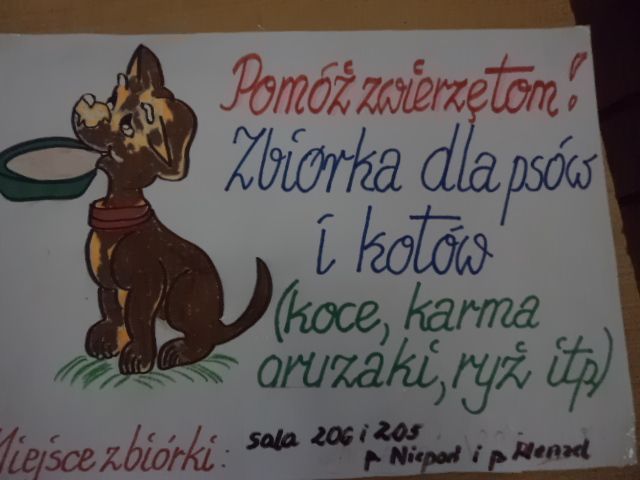 Pomóż zwierzętom!
Zbiórka dla psów
i kotów
(koce, karma
gruzaki, ryż itp)
Miejsce zbiórki: sala 206 i 205
p. i p.